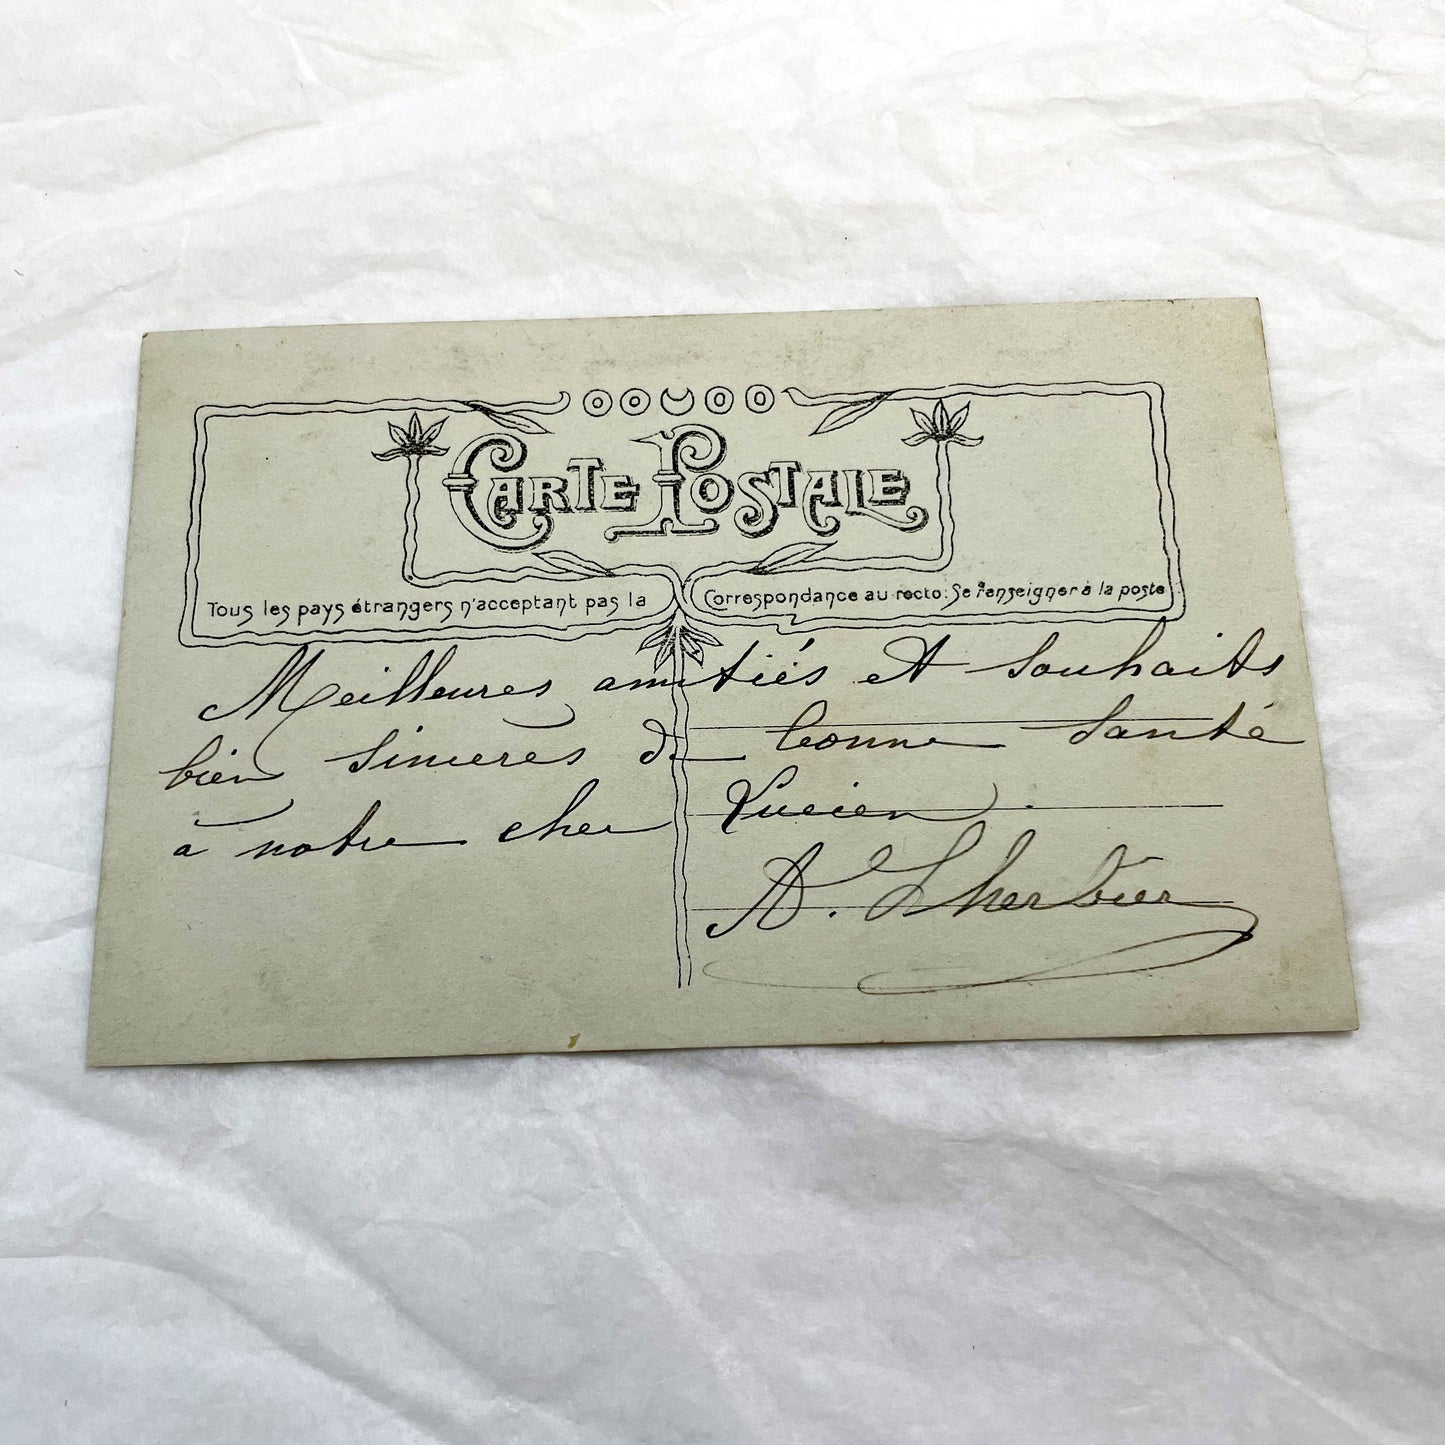 CARTE POSTALE
Tous les pays étrangers n'acceptent pas la Correspondance au recto: Se renseigner à la poste
Meilleures amitiés et souhaits
bien sincères de bonne santé
à notre cher Lucien.
A. Lherbier